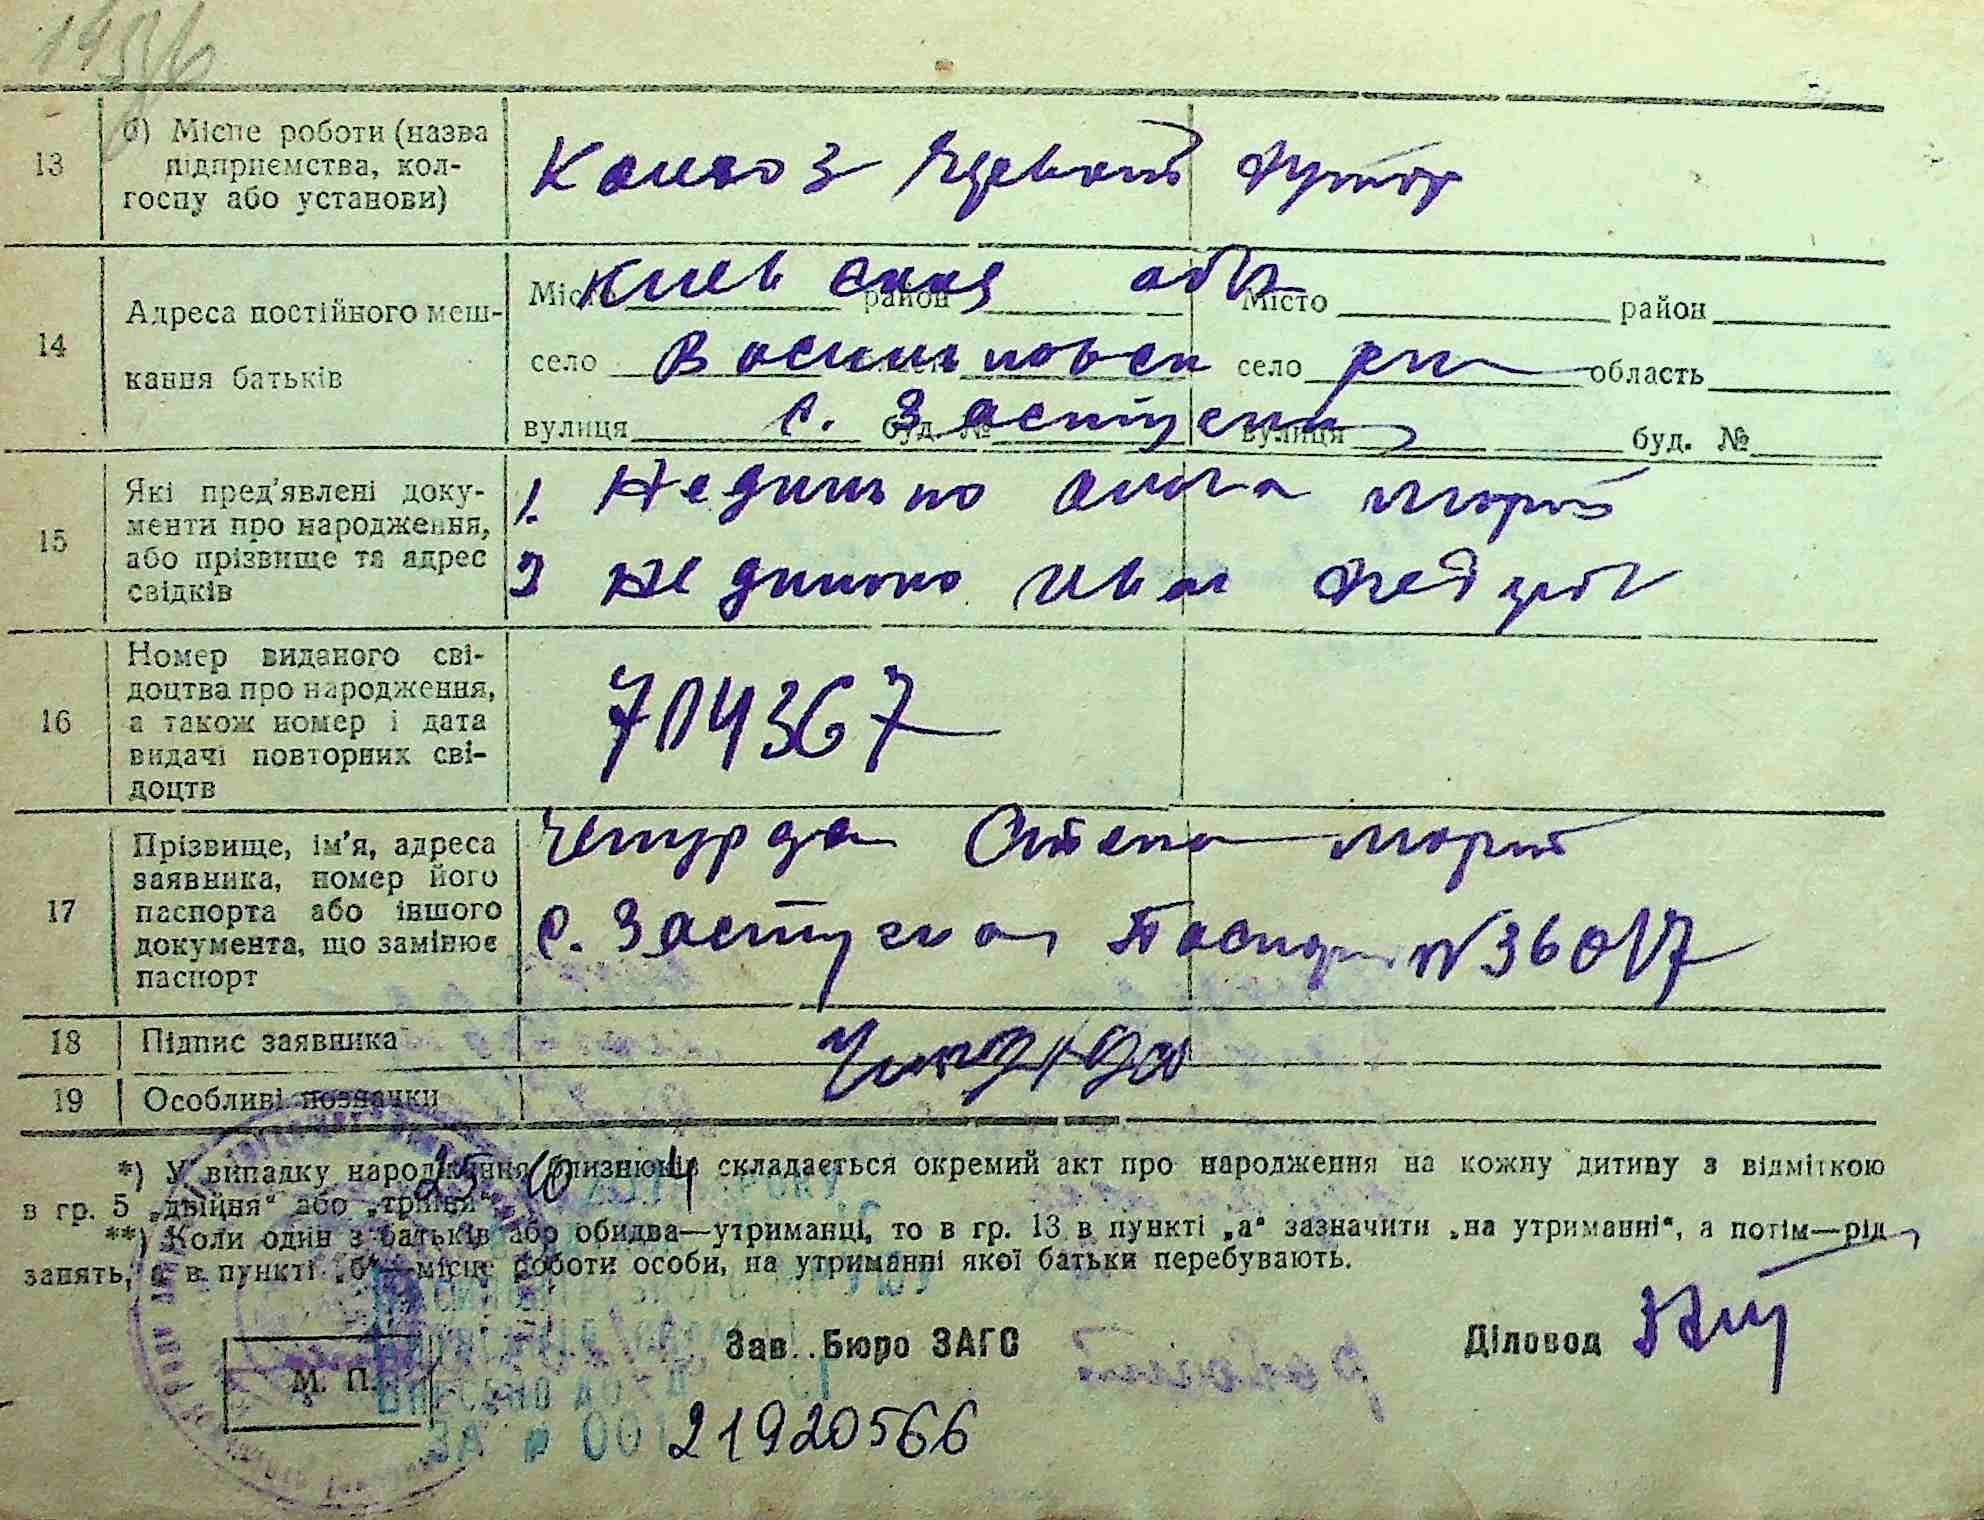 13
б) Місце роботи (назва
підприємства, кол-
госпу або установи)
Колхоз
14
Адреса постійного меш-
кання батьків
Місто район Місто район
Киевская обл
село село область
Васильковск рн
вулиця буд. № вулиця буд. №
с. Застугна
15
Які пред'явлені доку-
менти про народження,
або прізвище та адрес
свідків
1. Недилько Март
2 Недилько Иван
16
Номер виданого сві-
доцтва про народження,
а також номер і дата
видачі повторних сві-
доцтв
704367
17
Прізвище, ім'я, адреса
заявника, номер його
паспорта або іншого
документа, що замінює
паспорт
Чепурда Степа Март
с. Застугна Паспорт N 36017
18
Підпис заявника
19
Особливі позначки
*) У випадку народження близнюків складається окремий акт про народження на кожну дитину з відміткою
в гр. 5 „двійня“ або „трійня“.
**) Коли один з батьків або обидва—утриманці, то в гр. 13 в пункті „а“ зазначити „на утриманні“, а потім—рід
занять, а в пункті „б“—місце роботи особи, на утриманні якої батьки перебувають.
Зав. Бюро ЗАГС
Діловод
М. П.
21920566